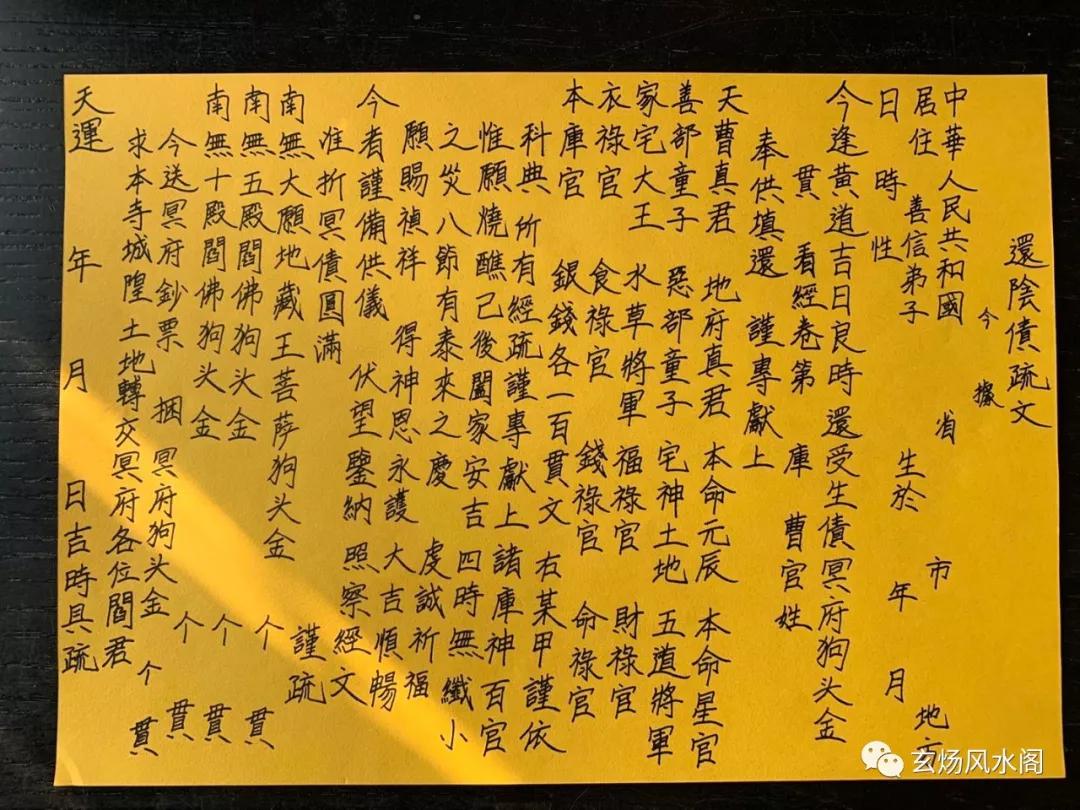 還陰債疏文
今據
中華人民共和國 省 市 地方
居住 善信弟子 生於 年 月
日 時 性
今逢黄道吉日良時還受生債冥府狗头金
貫 看經卷第 庫 曹官姓
奉供填還 謹專獻上
天曹真君 地府真君 本命元辰 本命星官
善部童子 惡部童子 宅神土地 五道將軍
家宅大王 水草將軍 福祿官 財祿官
衣祿官 食祿官 錢祿官 命祿官
本庫官 銀錢各一百貫文 右某甲謹依
科典所有經疏謹專獻上諸庫神百官
惟願燒醮已後闔家安吉四時無纖小
之災八節有泰來之慶 虔誠祈福
願賜禎祥 得神恩永護 大吉順暢
今者謹備供儀 伏望鑒納 照察經文
准折冥債圓滿 謹疏
南無大願地藏王菩萨狗头金 个 貫
南無五殿閻佛狗头金 个 貫
南無十殿閻佛狗头金 个 貫
今送冥府鈔票 捆冥府狗头金 个 貫
求本寺城隍土地轉交冥府各位閻君
天運 年 月 日吉時具疏
玄炀风水阁